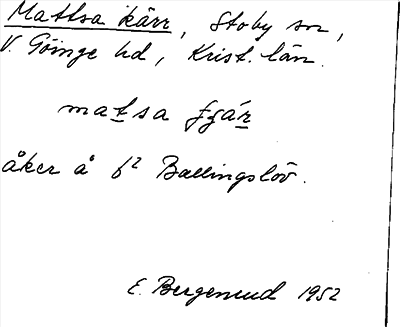 Mattsa kärr, Stoby sn,
V. Göinge hd, Krist. län.
matsa
åker å b² Ballingslöv.
E. Bergensud 1952